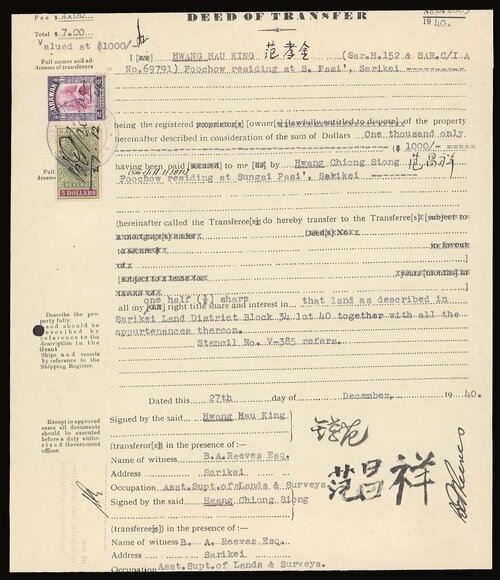 DEED OF TRANSFER
1940.
Total $7.00
Valued at $1000/-
I HWANG HAU KING 范孝金 (Sar.H.152 & SAR.C/I A
Full names and ad-
dresses of transferors
No.69791) Foochow residing at S. Pasi', Sarikei
SARAWAK
being the registered proprietor[s] [owner[s] [lawfully entitled to dispose] of the property
hereinafter described in consideration of the sum of Dollars One thousand only
($ 1000/-
having been paid to me by Hwang Chiong Siong 范昌祥
Foochow residing at Sungai Pasi', Sarikei
5 DOLLARS
(hereinafter called the Transferee[s] do hereby transfer to the Transferee[s] [subject to
in favour
one half (½) share
all my right title share and interest in that land as described in
Sarikei Land District Block 34 lot 40 together with all the
appurtenances thereon.
Stencil No. V-385 refers.
Describe the pro-
perty fully
and should be
described by
reference to the
description in the
Grant
Ships and vessels
by reference to the
Shipping Register.
Dated this 27th day of December, 1940.
Except in approved
cases all documents
should be executed
before a duly autho-
rized Government
officer.
Signed by the said Hwang Hau King
(transferor[s]) in the presence of :—
Name of witness B.A.Reeves Esq.
Address Sarikei
Occupation Asst.Supt.of Lands & Surveys.
Signed by the said Hwang Chiong Siong
范昌祥
(transferee[s]) in the presence of :—
Name of witness B. A. Reeves Esq.
Address Sarikei
Occupation Asst.Supt.of Lands & Surveys.